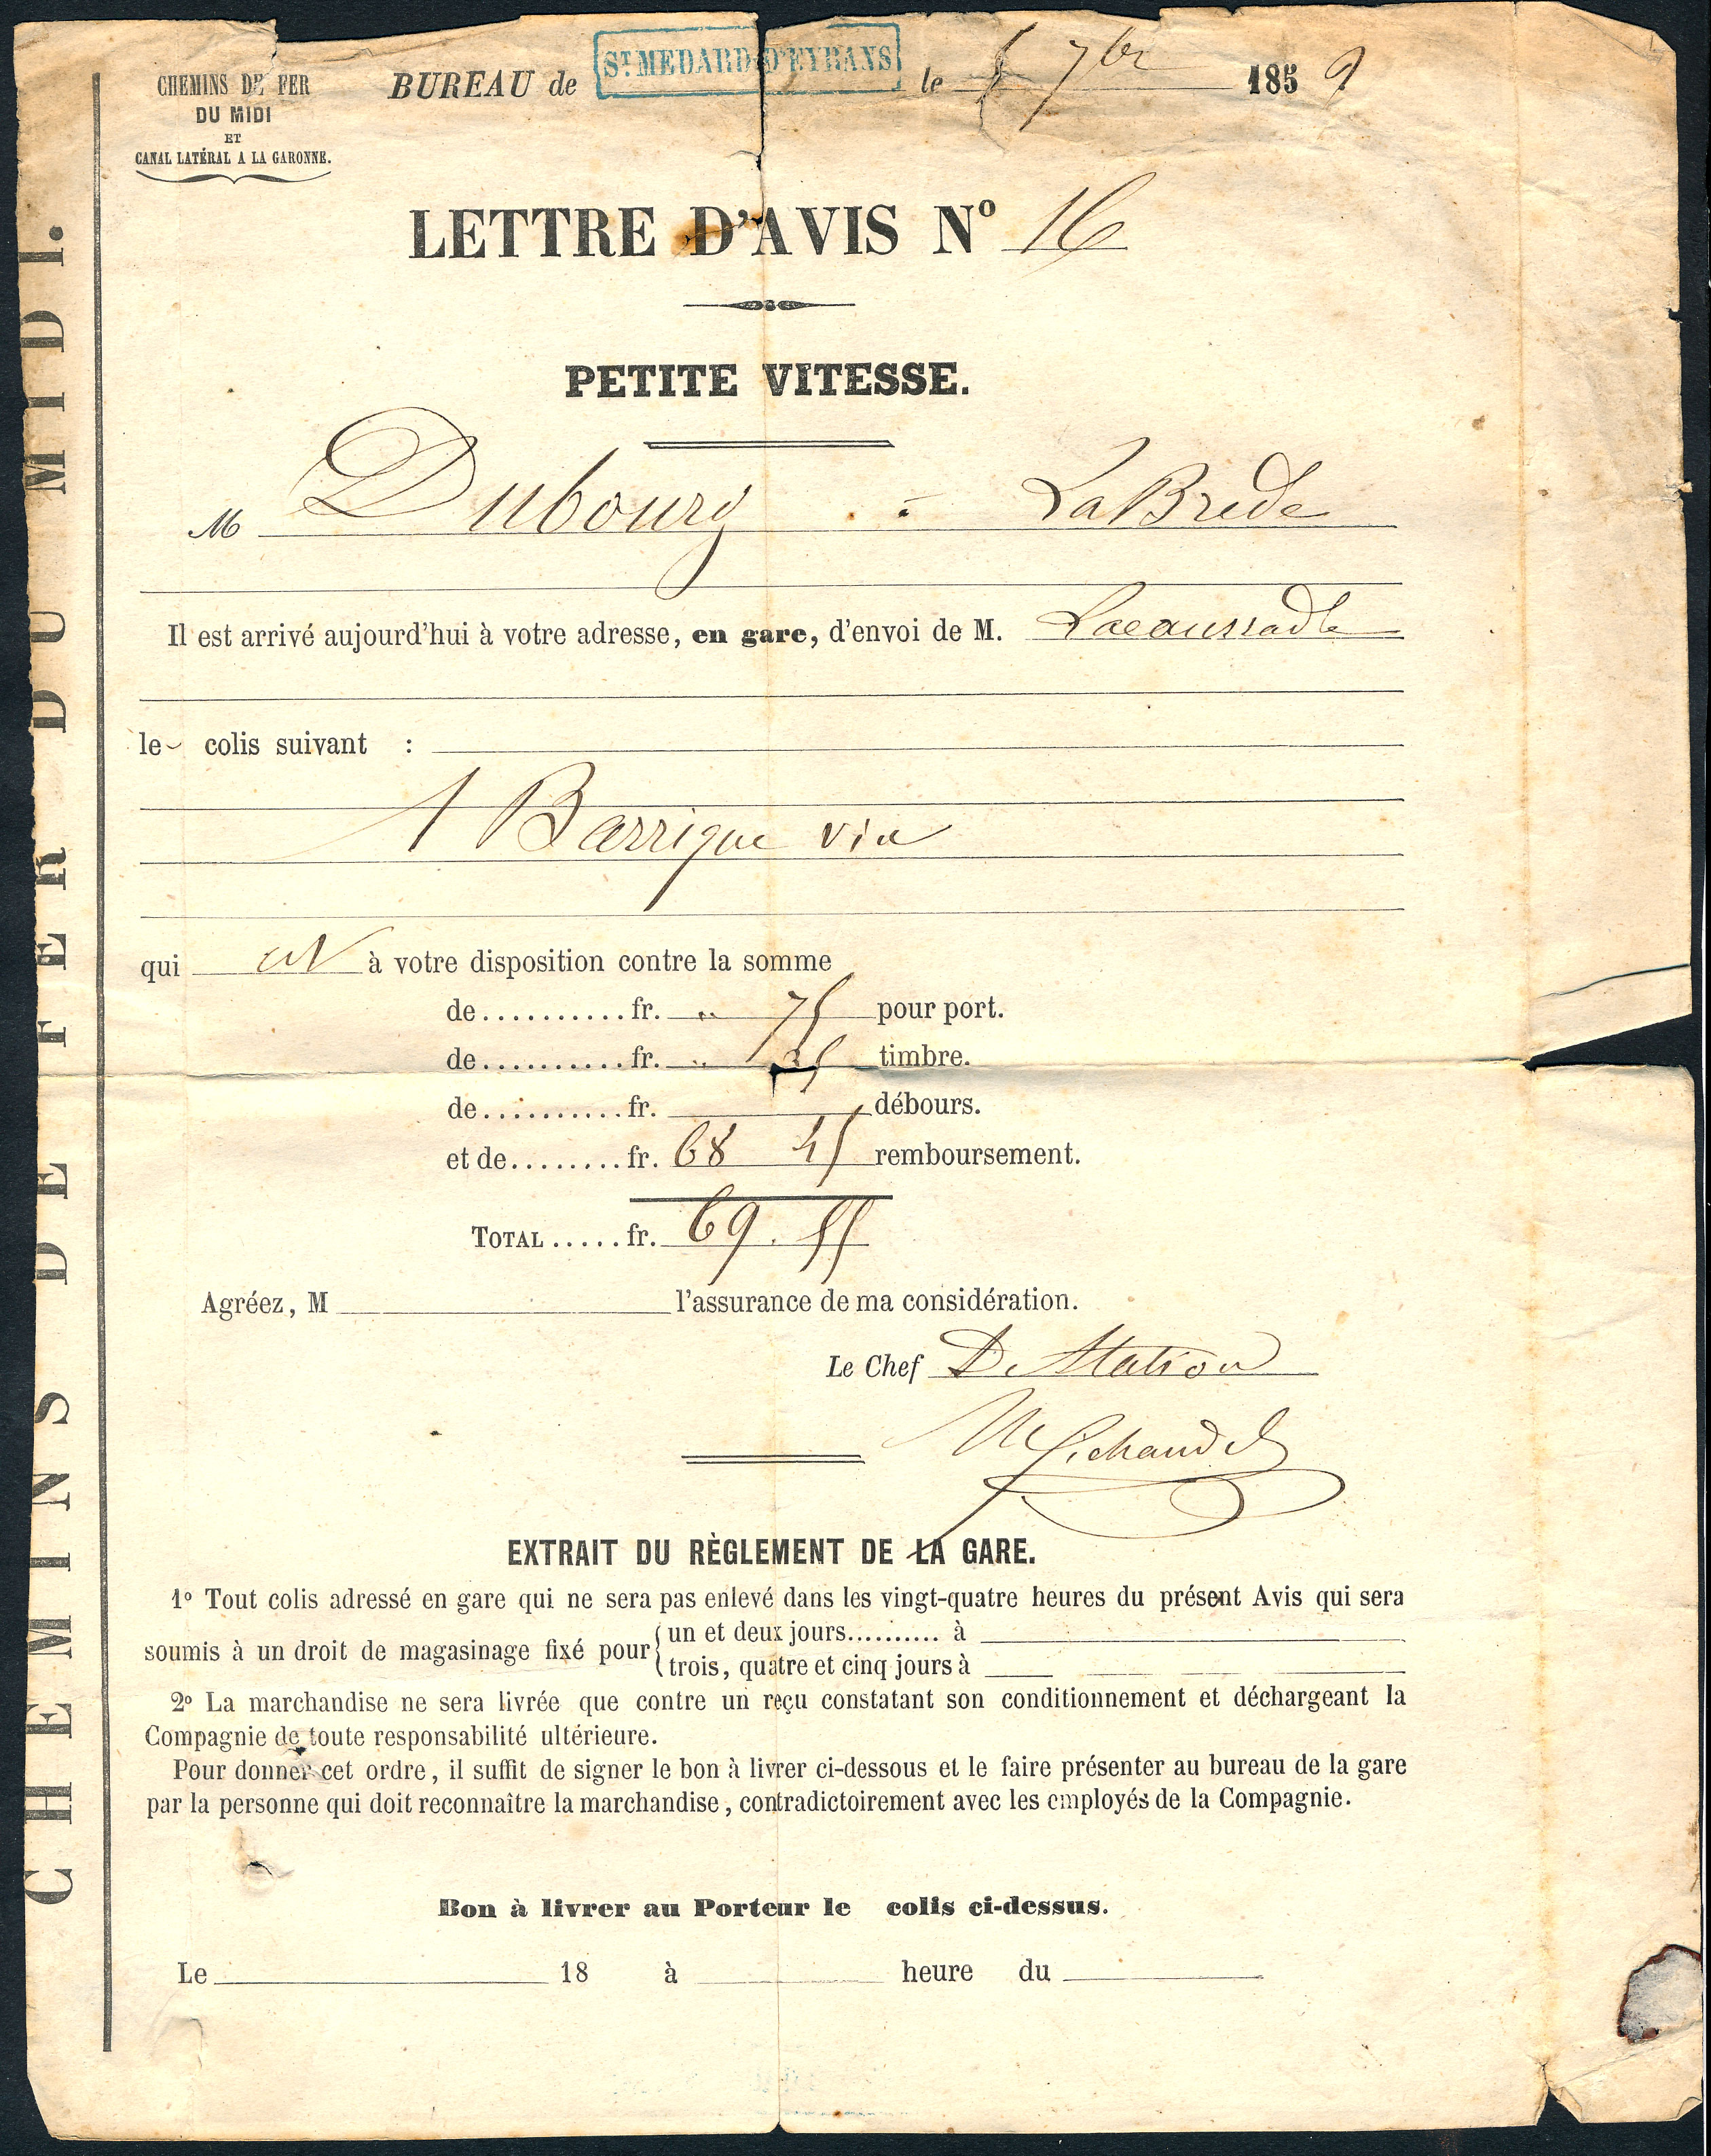 CHEMINS DE FER DU MIDI.
CHEMINS DE FER
DU MIDI
ET
CANAL LATÉRAL A LA GARONNE.
BUREAU de ST MEDARD D'EYRANS le 7bre 1859
LETTRE D'AVIS No 16
PETITE VITESSE.
M Dubourg - La Brede
Il est arrivé aujourd'hui à votre adresse, en gare, d'envoi de M.
le colis suivant :
1 Barrique vin
qui est à votre disposition contre la somme
de.......... fr. " 75 pour port.
de.......... fr. " 35 timbre.
de.......... fr. débours.
et de........ fr. 68 45 remboursement.
TOTAL..... fr. 69.55
Agréez, M l'assurance de ma considération.
Le Chef De Station
EXTRAIT DU RÈGLEMENT DE LA GARE.
1o Tout colis adressé en gare qui ne sera pas enlevé dans les vingt-quatre heures du présent Avis qui sera
soumis à un droit de magasinage fixé pour { un et deux jours.......... à
trois, quatre et cinq jours à
2o La marchandise ne sera livrée que contre un reçu constatant son conditionnement et déchargeant la
Compagnie de toute responsabilité ultérieure.
Pour donner cet ordre, il suffit de signer le bon à livrer ci-dessous et le faire présenter au bureau de la gare
par la personne qui doit reconnaître la marchandise, contradictoirement avec les employés de la Compagnie.
Bon à livrer au Porteur le colis ci-dessus.
Le 18 à heure du